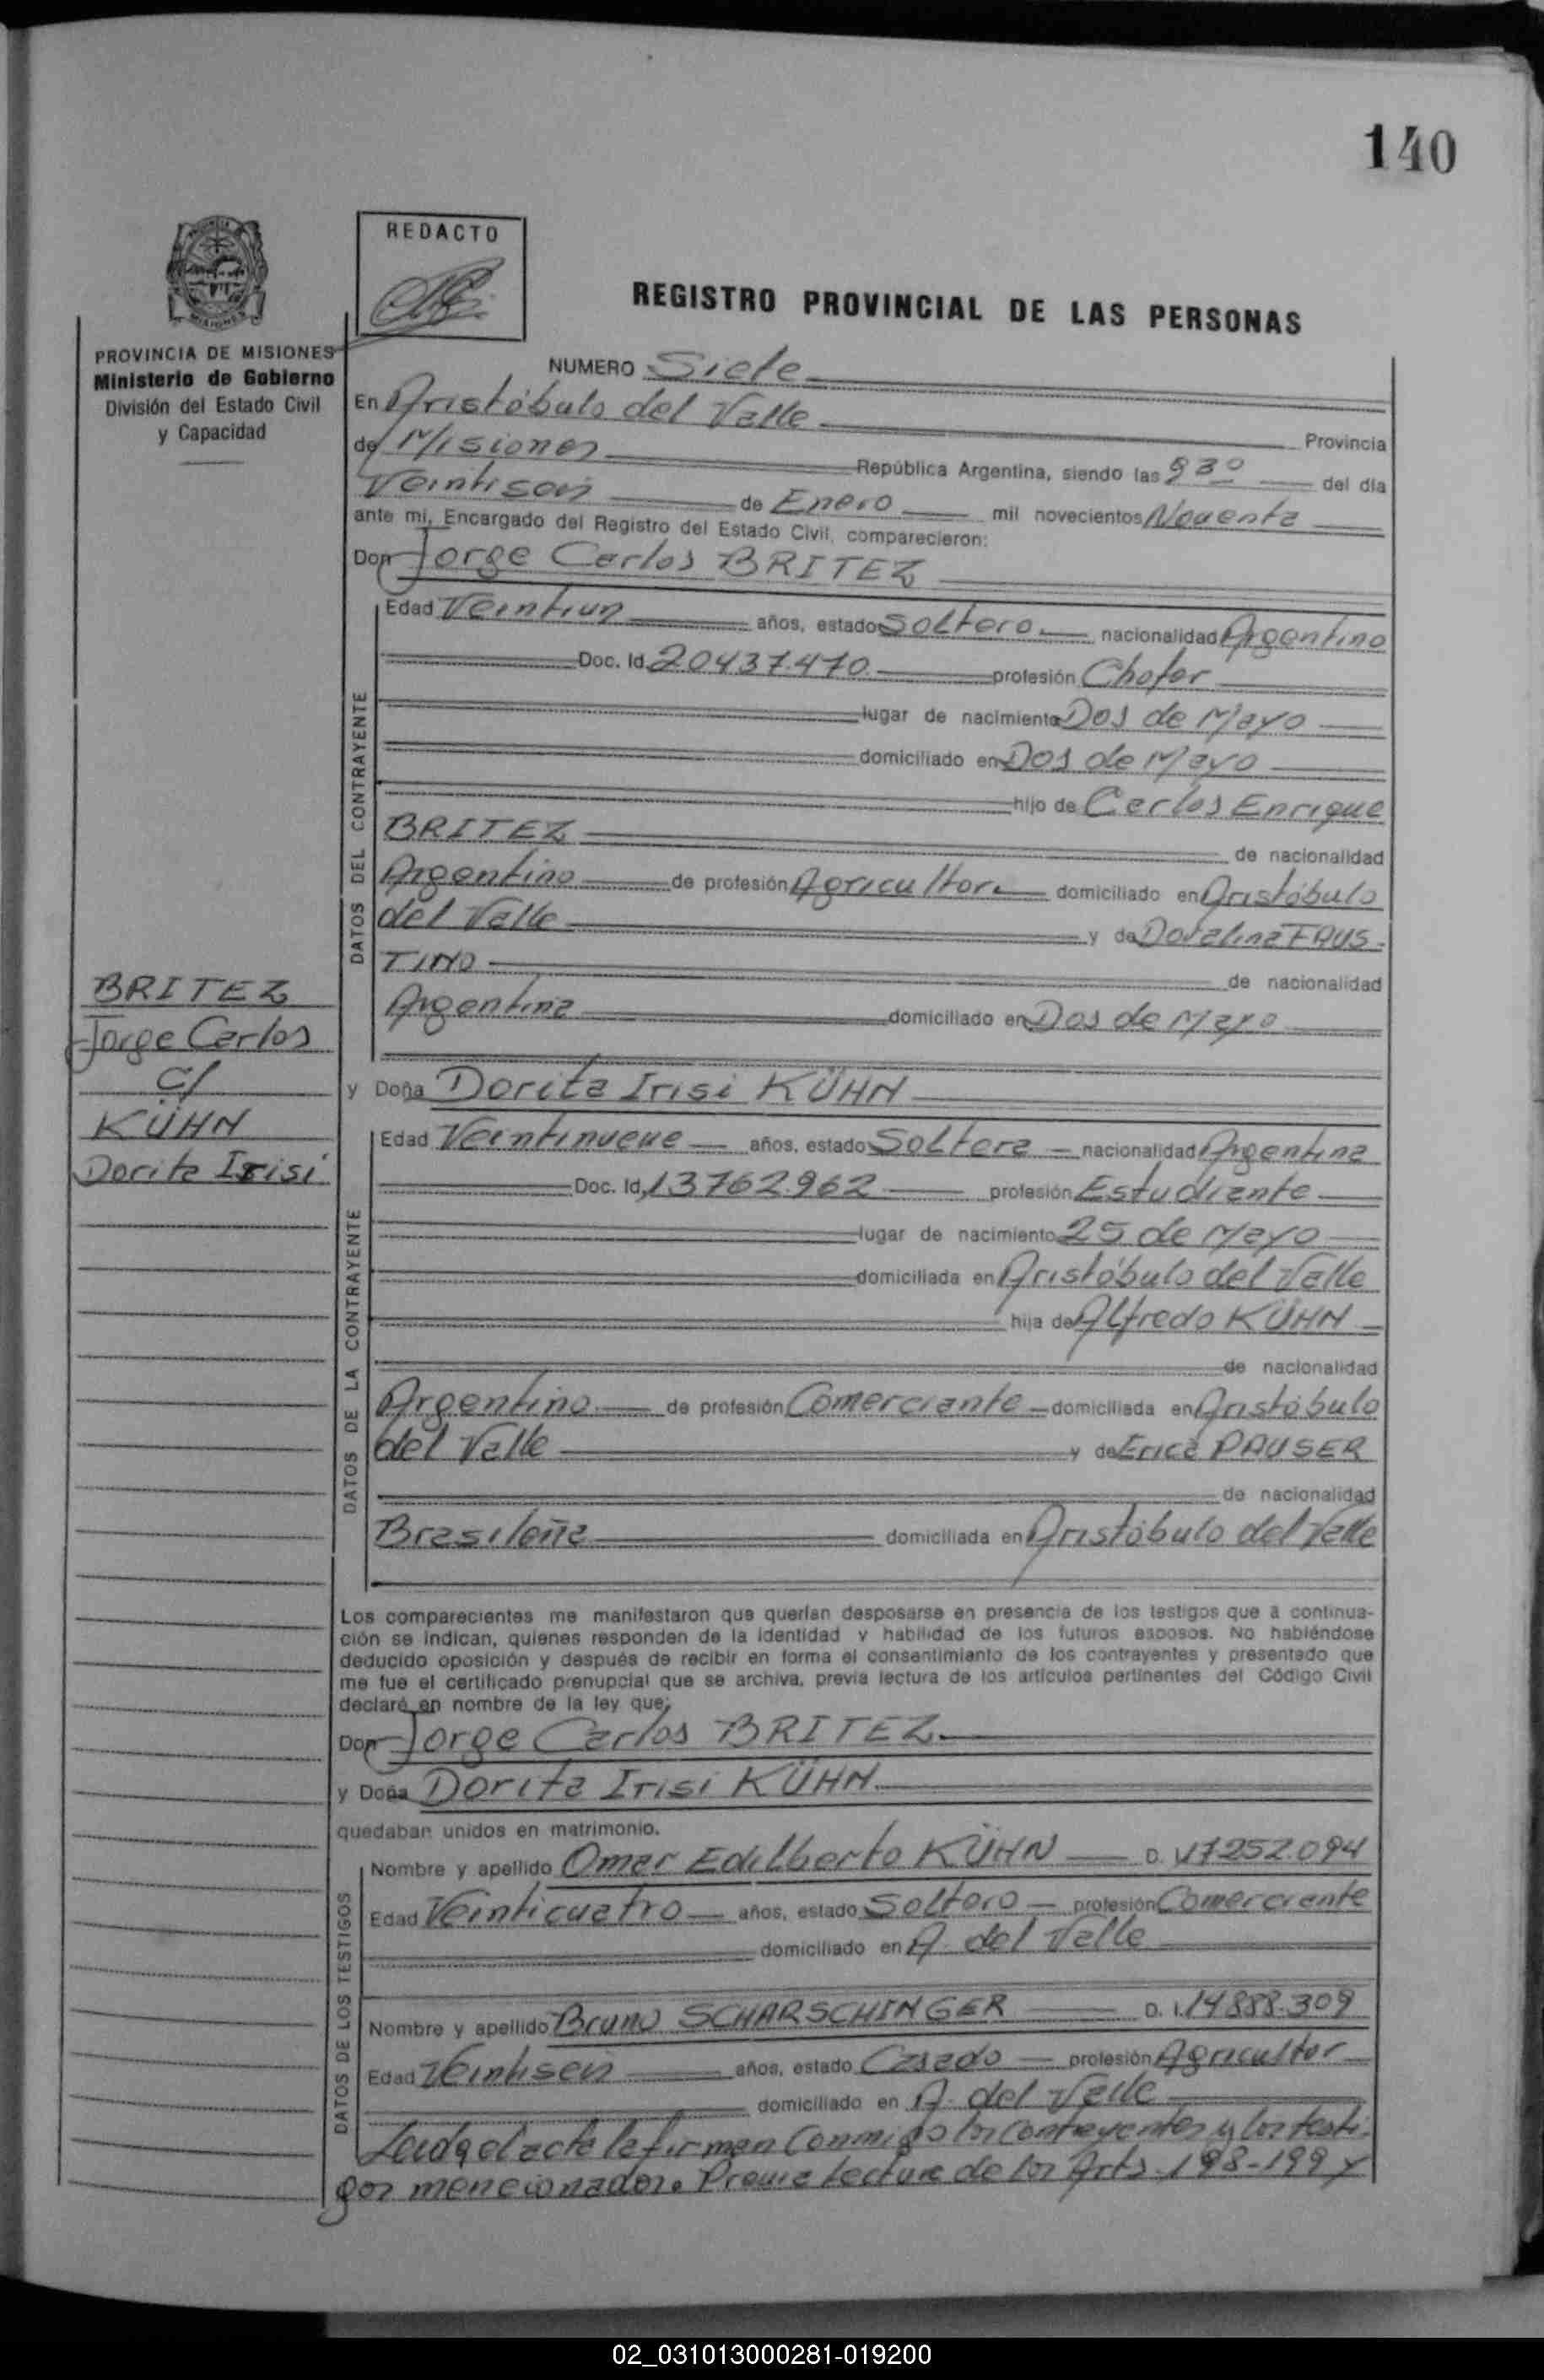 140
REDACTO
REGISTRO PROVINCIAL DE LAS PERSONAS
PROVINCIA DE MISIONES
Ministerio de Gobierno
División del Estado Civil
y Capacidad
NUMERO Siete
En Aristóbulo del Valle Provincia
de Misiones República Argentina, siendo las 830 del día
Veintiseis de Enero mil novecientos Noventa
ante mi, Encargado del Registro del Estado Civil, comparecieron:
Don Jorge Carlos BRITEZ
DATOS DEL CONTRAYENTE
Edad Veintiun años, estado Soltero nacionalidad Argentino
Doc. Id. 20437.470 profesión Chofer
lugar de nacimiento Dos de Mayo
domiciliado en Dos de Mayo
hijo de Carlos Enrique
BRITEZ de nacionalidad
Argentino de profesión Agricultor domiciliado en Aristóbulo
del Valle y de Doralina FAUS-
TINO de nacionalidad
Argentina domiciliado en Dos de Mayo
BRITEZ
Jorge Carlos
C/
KÜHN
Dorita Irisi
y Doña Dorita Irisi KÜHN
DATOS DE LA CONTRAYENTE
Edad Veintinueve años, estado Soltera nacionalidad Argentina
Doc. Id. 13762.962 profesión Estudiante
lugar de nacimiento 25 de Mayo
domiciliada en Aristóbulo del Valle
hija de Alfredo KÜHN
de nacionalidad
Argentino de profesión Comerciante domiciliada en Aristóbulo
del Valle y de Erica PAUSER
de nacionalidad
Brasileña domiciliada en Aristóbulo del Valle
Los comparecientes me manifestaron que querían desposarse en presencia de los testigos que a continua-
ción se indican, quienes responden de la identidad y habilidad de los futuros esposos. No habiéndose
deducido oposición y después de recibir en forma el consentimiento de los contrayentes y presentado que
me fue el certificado prenupcial que se archiva, previa lectura de los artículos pertinentes del Código Civil
declaré en nombre de la ley que;
Don Jorge Carlos BRITEZ
y Doña Dorita Irisi KÜHN
quedaban unidos en matrimonio.
DATOS DE LOS TESTIGOS
Nombre y apellido Omar Edilberto KÜHN D. I. 17252.094
Edad Veinticuatro años, estado Soltero profesión Comerciante
domiciliado en A. del Valle
Nombre y apellido Bruno SCHARSCHINGER D. I. 14888.309
Edad Veintiseis años, estado Casado profesión Agricultor
domiciliado en A. del Valle
Leida el acta la firman conmigo los contrayentes y los testi-
gos mencionados. Previa lectura de los Arts. 198-199 y
02_031013000281-019200